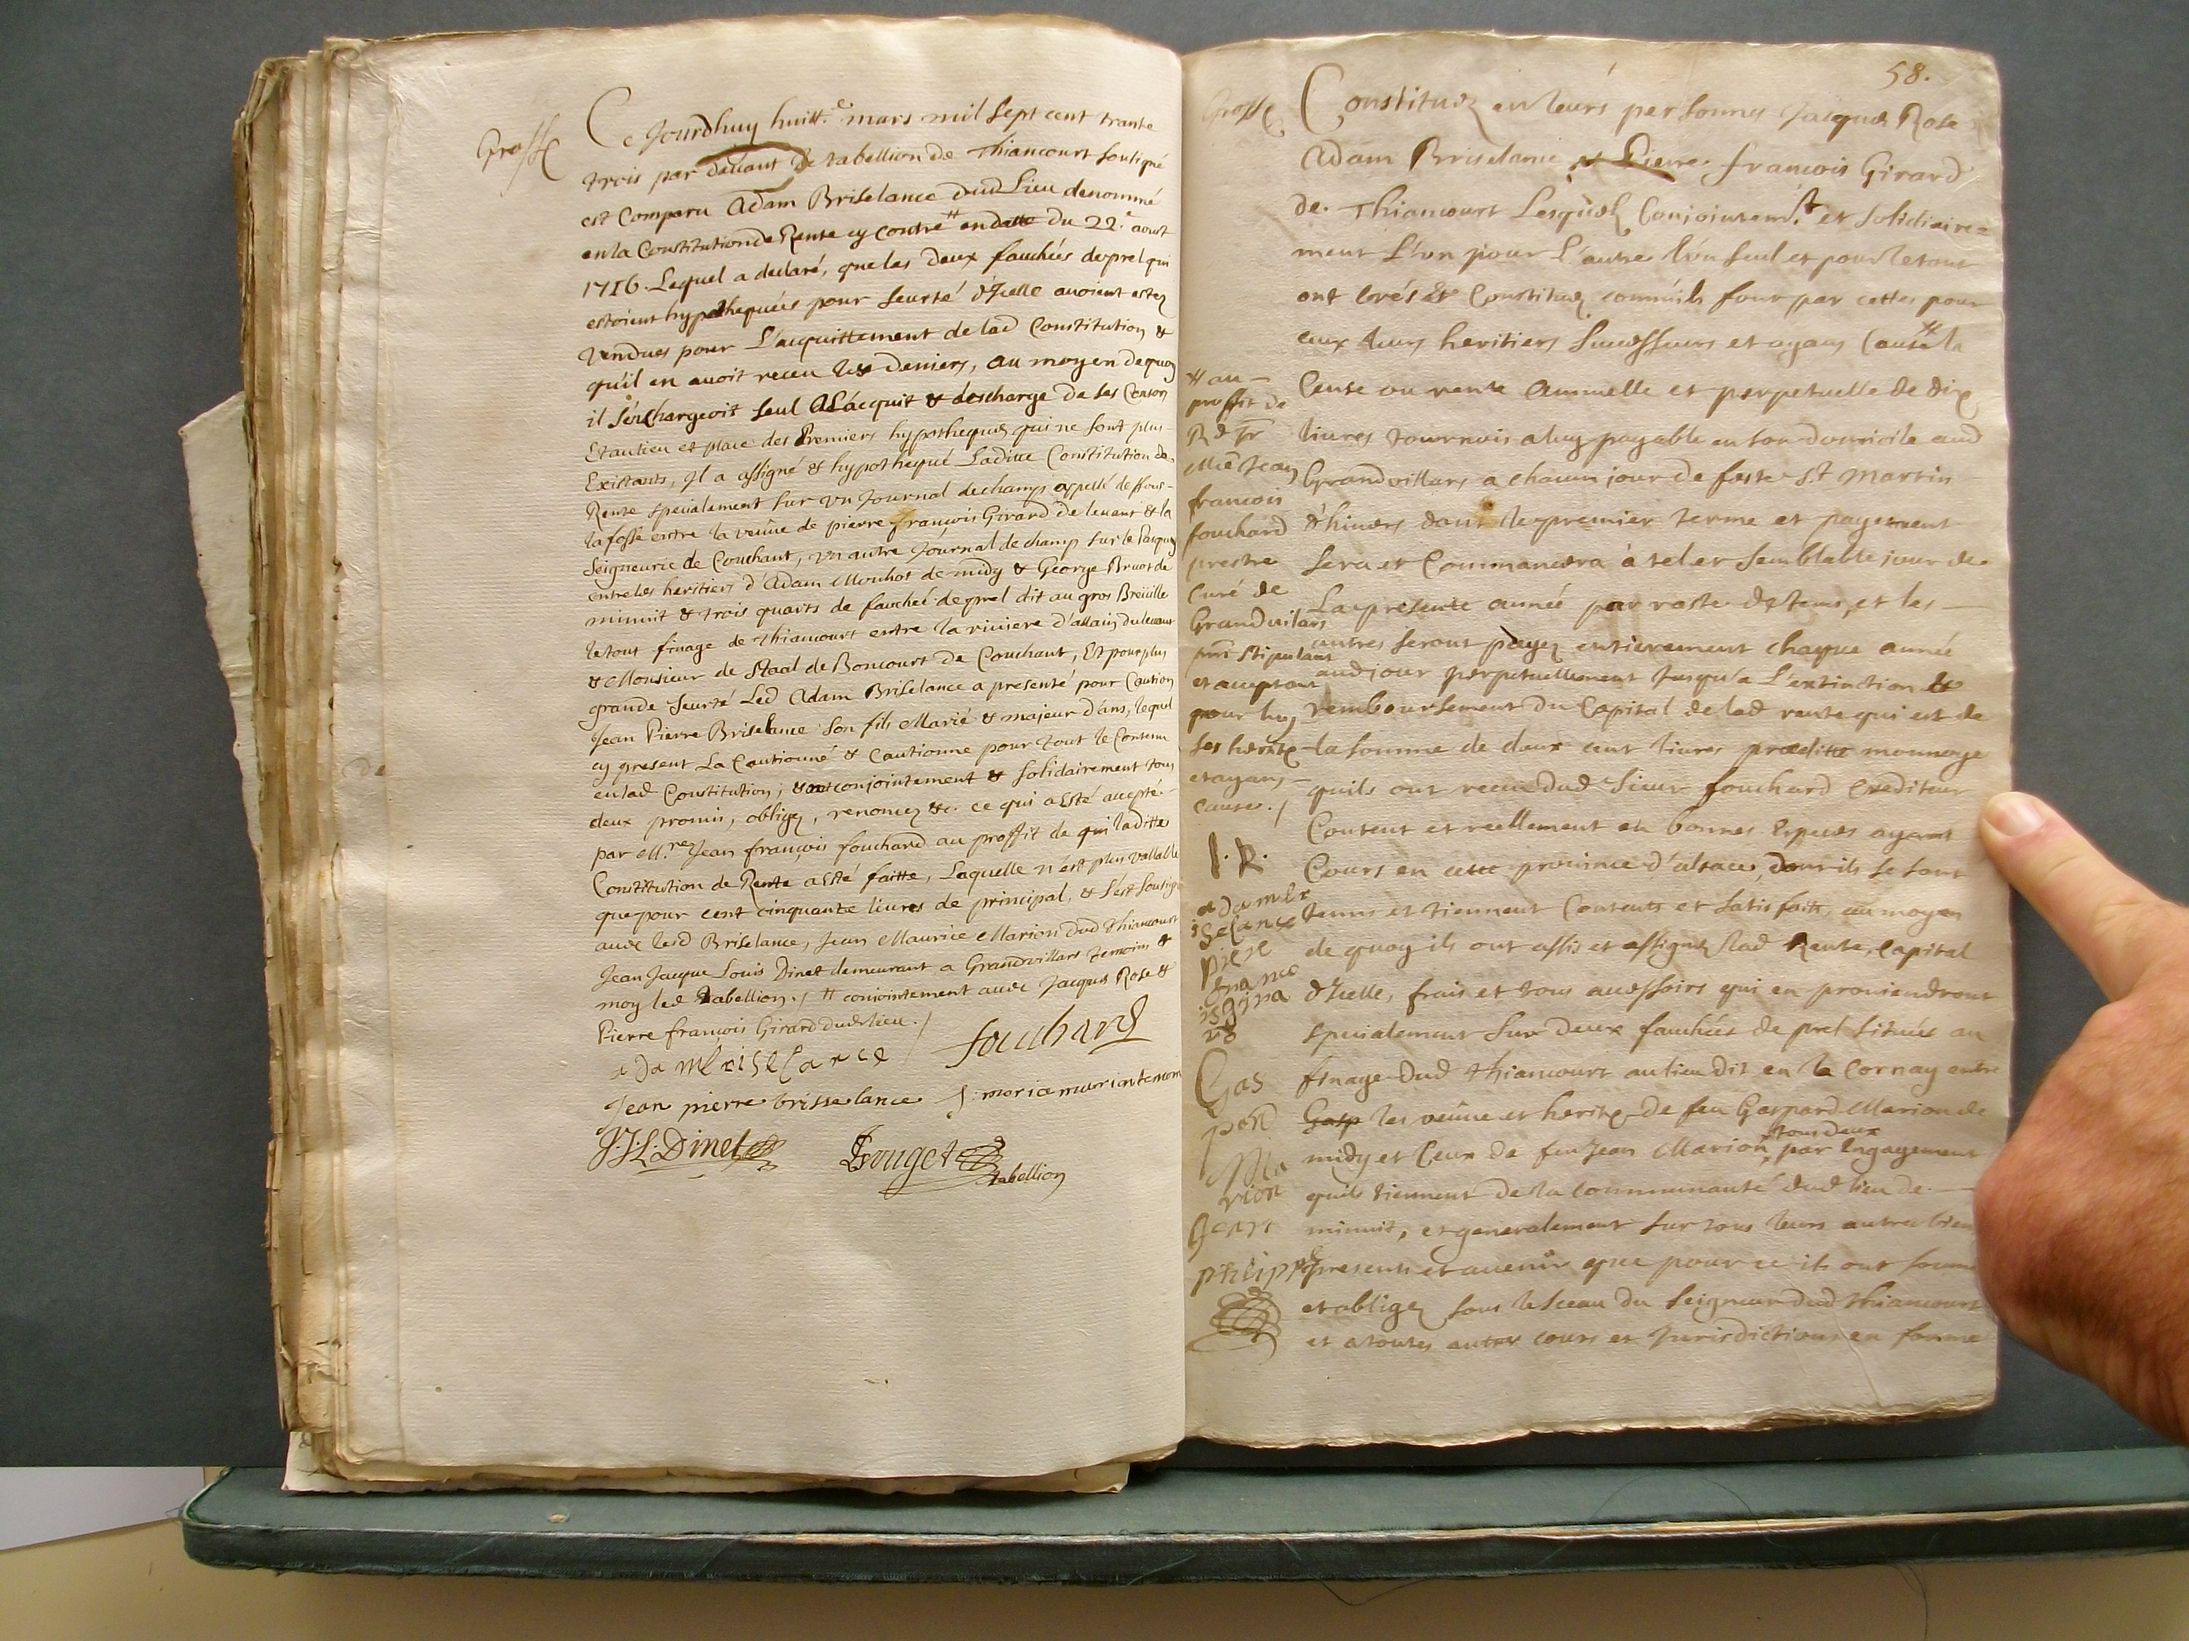 Grosse
Ce Jourdhuy huitt.e mars mil sept cent trante
trois par devant le tabellion de Thiancourt sousigné
est Comparu Adam Briselance dud Lieu denommé
en la Constitution de Rente cy contre # en datte du 22.e aoust
1716. Lequel a declaré, que les deux fauchées de prel qui
estoient hypothequées pour seurté d'Icelle avoient estez
vendues pour L'acquittement de lad Constitution &
qu'il en avoit receu les deniers, au moyen dequoy
il s'en chargeoit seul A L'acquit & descharge de ses Conson
Et au lieu et place des Premiers hypotheques qui ne sont plus
Existants, Il a assigné & hypothequé Laditte Constitution de
Rente specialement sur vn Journal de champs appellé dessous
la fosse entre la veuve de pierre françois Girard de levant & la
Seigneurie de Couchant, vn autre Journal de champ sur le Pasquy
entre les heritiers d'Adam Mouhot de midy & George Bruot de
minuit & trois quarts de fauchée de prel dit au gros Breüille
le tout finage de Thiancourt entre la riviere d'allain du levant
& Monsieur de Staal de Boncourt de Couchant, Et pour plus
grande seurté Led Adam Briselance a presenté pour Caution
Jean Pierre Briselance son fils Marié & majeur d'ans, lequel
cy present La Cautionné & Cautionne pour tout le Contenu
en lad Constitution, & ont conjointement & solidairement tous
deux promis, obligez, renoncez &c. ce qui a esté accepté
par M.re Jean françois fouchard au proffit de qui laditte
Constitution de Rente a esté faitte, Laquelle n'est plus vallable
que pour cent cinquante livres de principal, & s'est sousig
avec led Briselance, Jean Maurice Marion dud Thiancourt
Jean Jacque Louis Dinet demeurant a Grandvillars temoins &
moy led Tabellion ./ # conjointement avec Jacques Rose &
Pierre françois Girard dud lieu ./
adam briselance fouchard
Jean pierre brisselance J: morice marion temoin
J.J.L. Dinet Frouget
tabellion
58.
Grosse
Constituez en leurs personnes Jacques Rose
Adam Briselance et Pierre françois Girard
de Thiancourt Lesquels Conjointem.t et solidiaire=
ment L'vn pour L'autre l'vn seul et pour le tout
ont crées et Constituez comm'ils font par cettes pour
eux leurs heritiers successeurs et ayans Cause # la
Cense ou rente annuelle et perpetuelle de dix
livres tournois a luy payable en son domicile aud
Grandvillars a chacun jour de feste St Martin
d'hivers dont le premier terme et payement
sera et Commancera à tel et semblable jour de
La presente année par raste de tems, et les
autres seront payez entierement chaque année
aud jour perpetuellement jusqu'a L'extinction et
remboursement du Capital de lad rente qui est de
la somme de deux cent livres preditte monnoye
quils ont receu dud sieur fouchard Crediteur
Content et reellement en bonnes Especes ayant
Cours en cette province d'alsace, dont ils se sont
tenus et tiennent Contents et satisfaits, au moyen
de quoy ils ont assis et assignez lad Rente, Capital
d'Icelle, frais et tous accessoirs qui en proviendront
specialement sur deux fauchées de prel situées au
finage dud Thiancourt au lieu dit en la Cornay entre
Gasp les veuve et herits de feu Gaspard Marion de
midy et Ceux de feu Jean Marion tous deux par Engagement
quils tiennent de la communauté dud lieu de
minuit, et generalement sur tous leurs autres biens
presents et avenir que pour ce ils ont soumis
et obligez sous le sceau du seigneur dud Thiancourt
et a toutes autres cours et Jurisdictions en forme
# au
proffit de
R.d Sr
Mre Jean
francois
fouchard
prestre
Curé de
Grandvilars
pnt stipulant
et acceptant
pour luy
ses herits
et ayans
cause ./
I. R.
adam br
iselance
piere
franco
is gira
rd
Gas
pard
Ma
rion
Jean
philippe